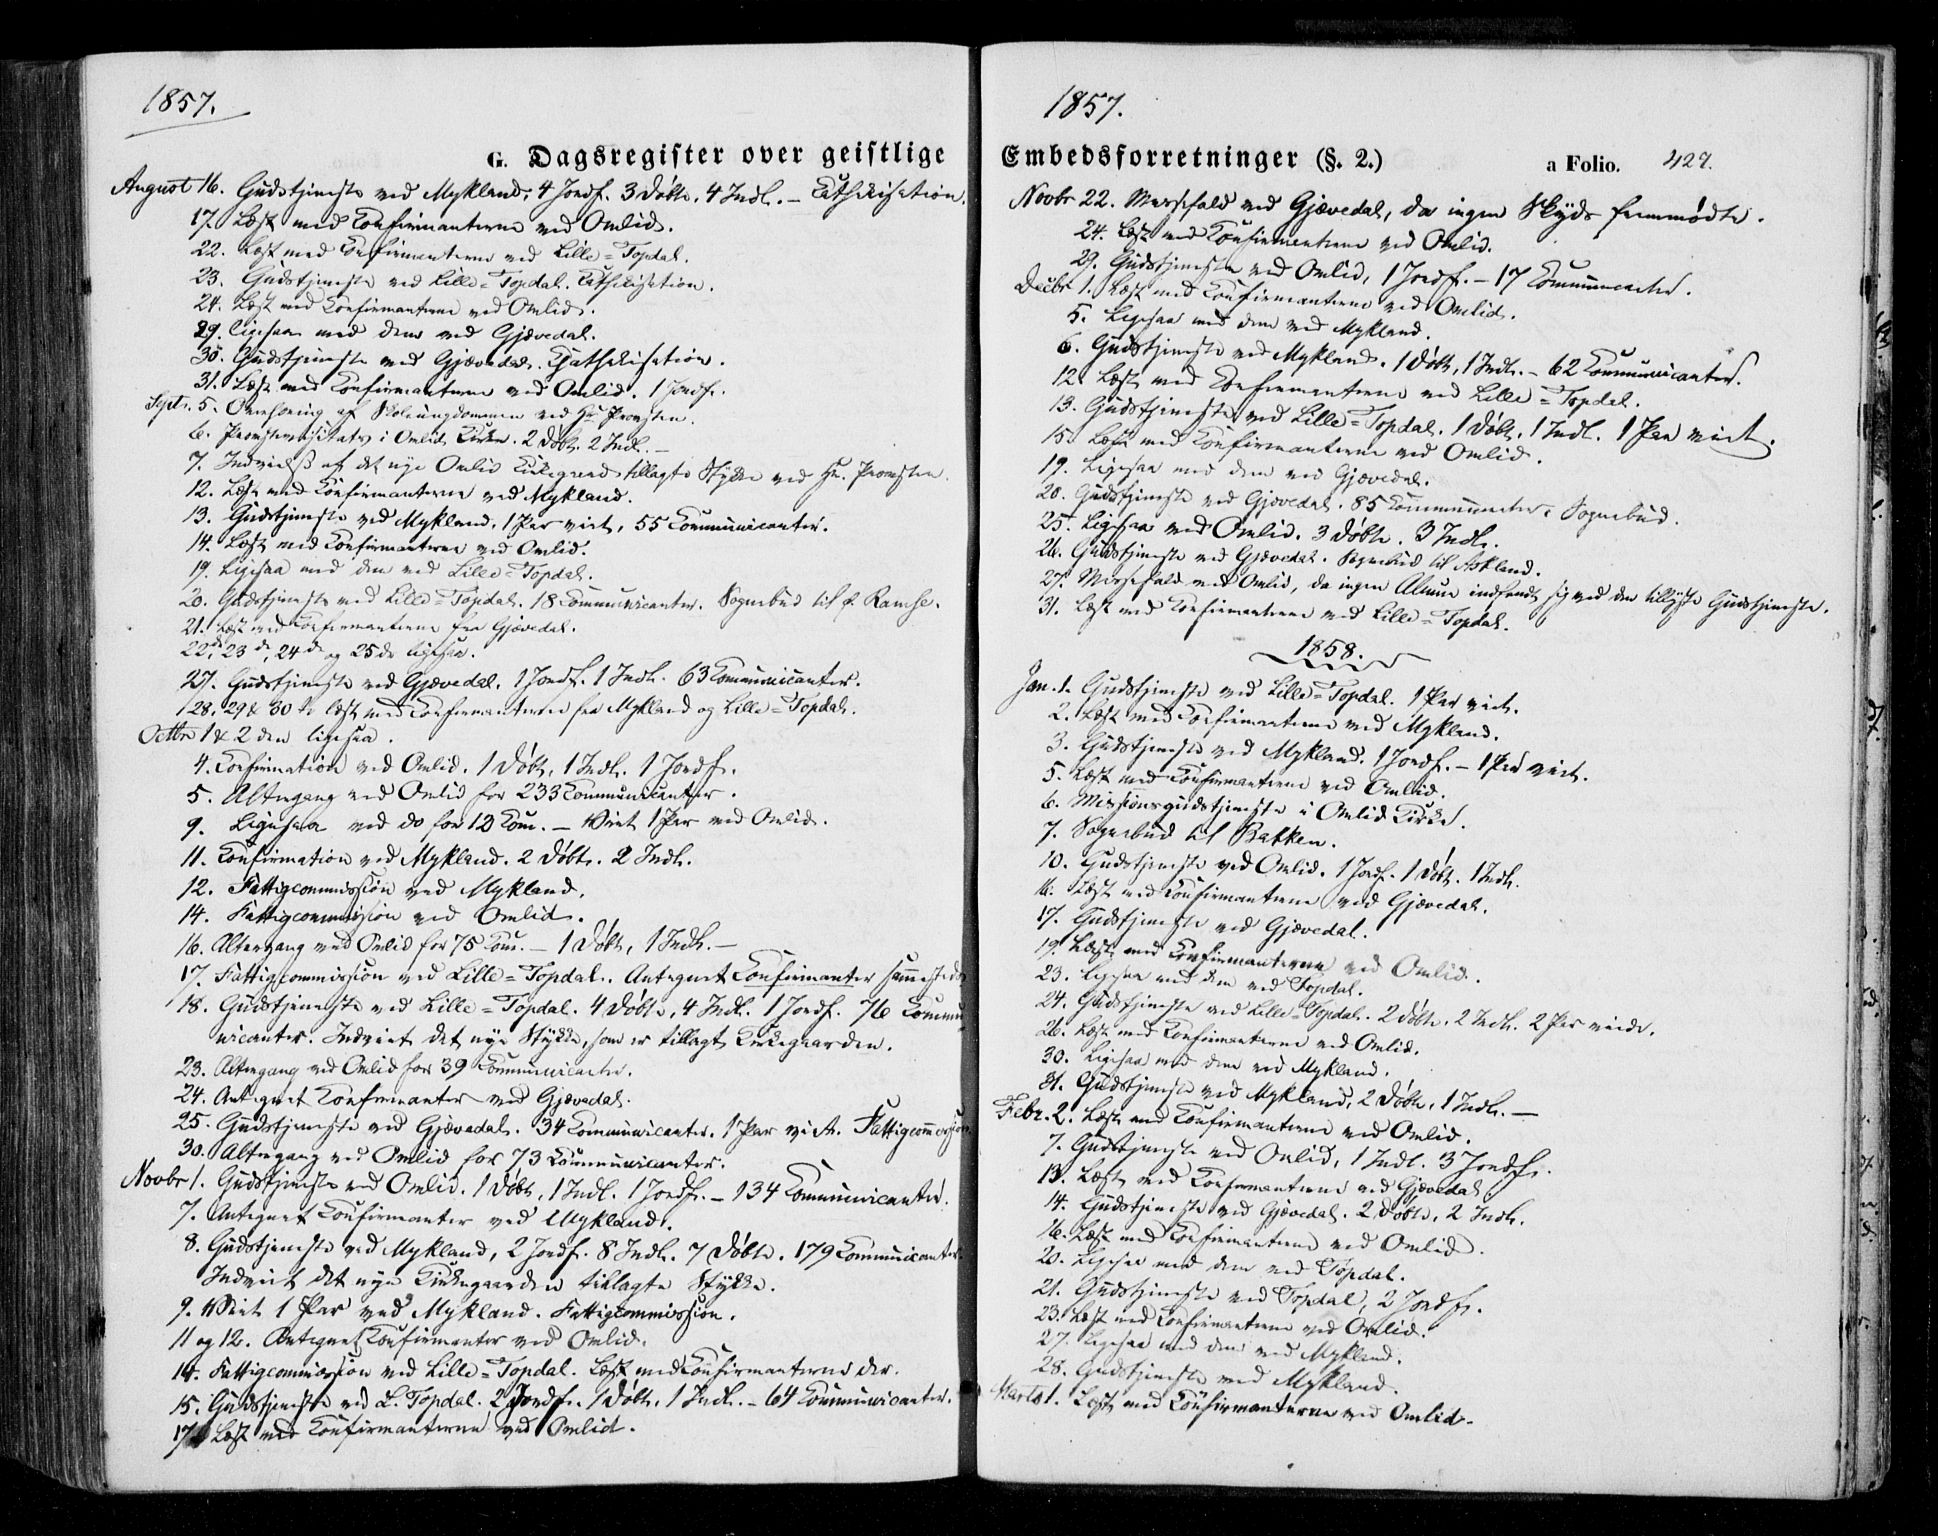 1857.
G. Dagsregister over geistlige
August 16. Gudstjeneste ved Mykland. 4 Jordf. 3 Døbte. 4 Indl. – Cathekisation.
17. Læst med Confirmanterne ved Omlid.
22. Læst med Confirmanterne ved Lille-Topdal.
23. Gudstjeneste ved Lille-Topdal. Cathekisation.
24. Læst med Confirmanterne ved Omlid.
29. ligesaa med dem ved Gjævedal.
30. Gudstjeneste ved Gjævedal. Cathekisation.
31. Læst med Confirmanterne ved Omlid. 1 Jordf.
Septr. 5. Overhøring af Skoleungdommen ved Hr Provsten.
6. Provstevisitats i Omlids Kirke. 2 Døbt. 2 Indl. –
7. Indvielse af det nye Omlid Kirkegaard tillagte Stykke ved Hr. Provsten.
12. Læst med Confirmanterne ved Mykland.
13. Gudstjeneste ved Mykland. 1 Par viet, 55 Communicanter.
14. Læst med Confirmanterne ved Omlid.
19. Ligesaa med dem ved Lille-Topdal.
20. Gudstjeneste ved Lille-Topdal. 18 Communicanter. Sognebud til Ramse.
21. Læst med Confirmanterne fra Gjævedal.
22de, 23de, 24de og 25de ligesaa.
27. Gudstjeneste ved Gjævedal. 1 Jordf. 1 Indl. 63 Communicanter.
28, 29 & 30te læst med Confirmanterne fra Mykland og Lille-Topdal.
Octbr 1 & 2den ligesaa.
4. Confirmation ved Omlid. 1 Døbt, 1 Indl. 1 Jordf.
5. Altergang ved Omlid for 233 Communicanter.
9. Ligesaa ved do for 12 Com. – Viet 1 Par ved Omlid.
11. Confirmation ved Mykland. 2 Døbt. 2 Indl.
12. Fattigcommission ved Mykland.
14. Fattigcommission ved Omlid.
16. Altergang ved Omlid for 75 Com. – 1 Døbt, 1 Indl. –
17. Fattigcommission ved Lille-Topdal. Antegnet Confirmanter sammesteds
18. Gudstjeneste ved Lille-Topdal. 4 Døbte, 4 Indl. 1 Jordf. 76 Commu-
nicanter. Indviet det nye Stykke, som er tillagt Kirkegaarden.
23. Altergang ved Omlid for 39 Communicanter.
24. Antegnet Confirmanter ved Gjævedal.
25. Gudstjeneste ved Gjævedal. 34 Communicanter. 1 Par viet. Fattigcommission
30. Altergang ved Omlid for 73 Communicanter.
Novbr 1. Gudstjeneste ved Omlid. 1 Døbt, 1 Indl. 1 Jordf. – 134 Communicanter.
7. Antegnet Confirmanter ved Mykland.
8. Gudstjeneste ved Mykland, 2 Jordf. 8 Indl. 7 Døbte. 179 Communicanter.
Indviet det nye Kirkegaarden tillagte Stykke.
9. Viet 1 Par ved Mykland. Fattigcommission.
11 og 12. Antegnet Confirmanter ved Omlid.
14. Fattigcommission ved Lille-Topdal. Læst med Confirmanterne der.
15. Gudstjeneste ved L. Topdal. 2 Jordf. 1 Døbt, 1 Indl. – 64 Communicanter.
17. Læst med Confirmanterne ved Omlid.
1857.
Embedsforretninger (§. 2.) a Folio. 427.
Novbr 22. Messefald ved Gjævedal, da ingen Skyds fremmødte.
24. Læst med Confirmanterne ved Omlid.
29. Gudstjeneste ved Omlid, 1 Jordf. – 17 Communicanter.
Decbr 1. Læst med Confirmanterne ved Omlid.
5. Ligesaa med dem ved Mykland.
6. Gudstjeneste ved Mykland. 1 Døbt, 1 Indl. – 62 Communicanter.
12. Læst med Confirmanterne ved Lille-Topdal.
13. Gudstjeneste ved Lille-Topdal. 1 Døbt. 1 Indl. 1 Par viet.
15. Læst med Confirmanterne ved Omlid.
19. Ligesaa med dem ved Gjævedal.
20. Gudstjeneste ved Gjævedal. 85 Communicanter. Sognebud.
25. Ligesaa ved Omlid. 3 Døbte. 3 Indl.
26. Gudstjeneste ved Gjævedal. Sognebud til Askland.
27. Messefald ved Omlid, da ingen Almue indfandt sig ved den tillyste Gudstjeneste.
31. Læst med Confirmanterne ved Lille-Topdal.
1858.
Jan. 1. Gudstjeneste ved Lille-Topdal. 1 Par viet.
2. Læst med Confirmanterne ved Mykland.
3. Gudstjeneste ved Mykland. 1 Jordf. – 1 Par viet.
5. Læst med Confirmanterne ved Omlid.
6. Missionsgudstjeneste i Omlid Kirke.
7. Sognebud til Bakken.
10. Gudstjeneste ved Omlid. 1 Jordf. 1 Døbt. 1 Indl.
16. Læst med Confirmanterne ved Gjævedal.
17. Gudstjeneste ved Gjævedal.
19. Læst med Confirmanterne ved Omlid.
23. Ligesaa med dem ved Topdal.
24. Gudstjeneste ved Lille-Topdal. 2 Døbte, 2 Indl. 2 Par viede.
26. Læst med Confirmanterne ved Omlid.
30. Ligesaa med dem ved Mykland.
31. Gudstjeneste ved Mykland, 2 Døbte, 1 Indl. –
Febr. 2. Læst med Confirmanterne ved Omlid.
7. Gudstjeneste ved Omlid, 1 Indl. 3 Jordf.
13. Læst med Confirmanterne ved Gjævedal
14. Gudstjeneste ved Gjævedal. 2 Døbte, 2 Indl.
16. Læst med Confirmanterne ved Omlid.
20. Ligesaa med dem ved Topdal.
21. Gudstjeneste ved Topdal, 2 Jordf.
23. Læst med Confirmanterne ved Omlid.
27. Ligesaa med dem ved Mykland.
28. Gudstjeneste ved Mykland.
Marts 1. Læst med Confirmanterne ved Omlid.